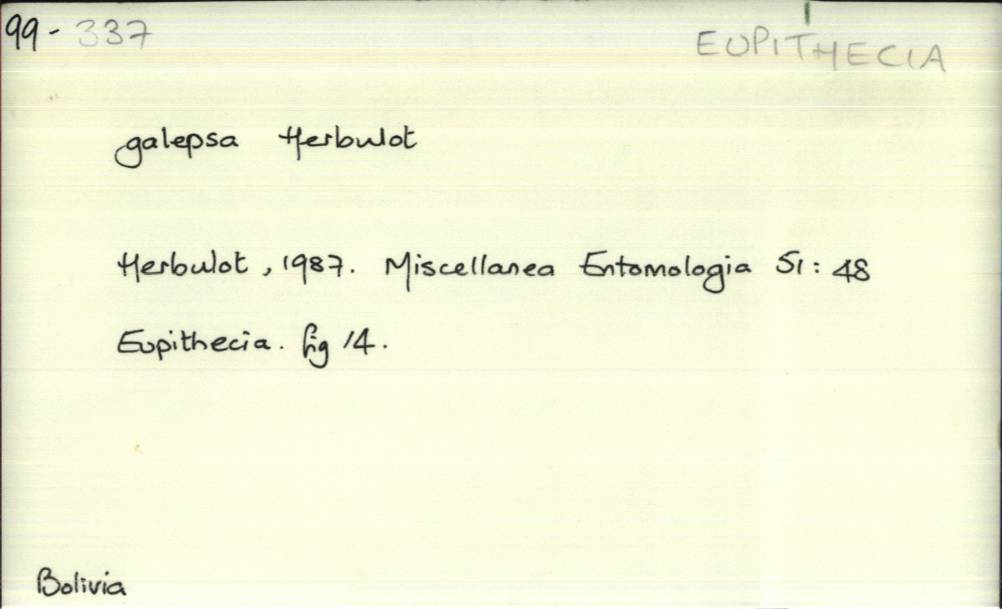 99-337
EUPITHECIA
galepsa Herbulot
Herbulot, 1987. Miscellanea Entomologia 51: 48
Eupithecia. fig 14.
Bolivia